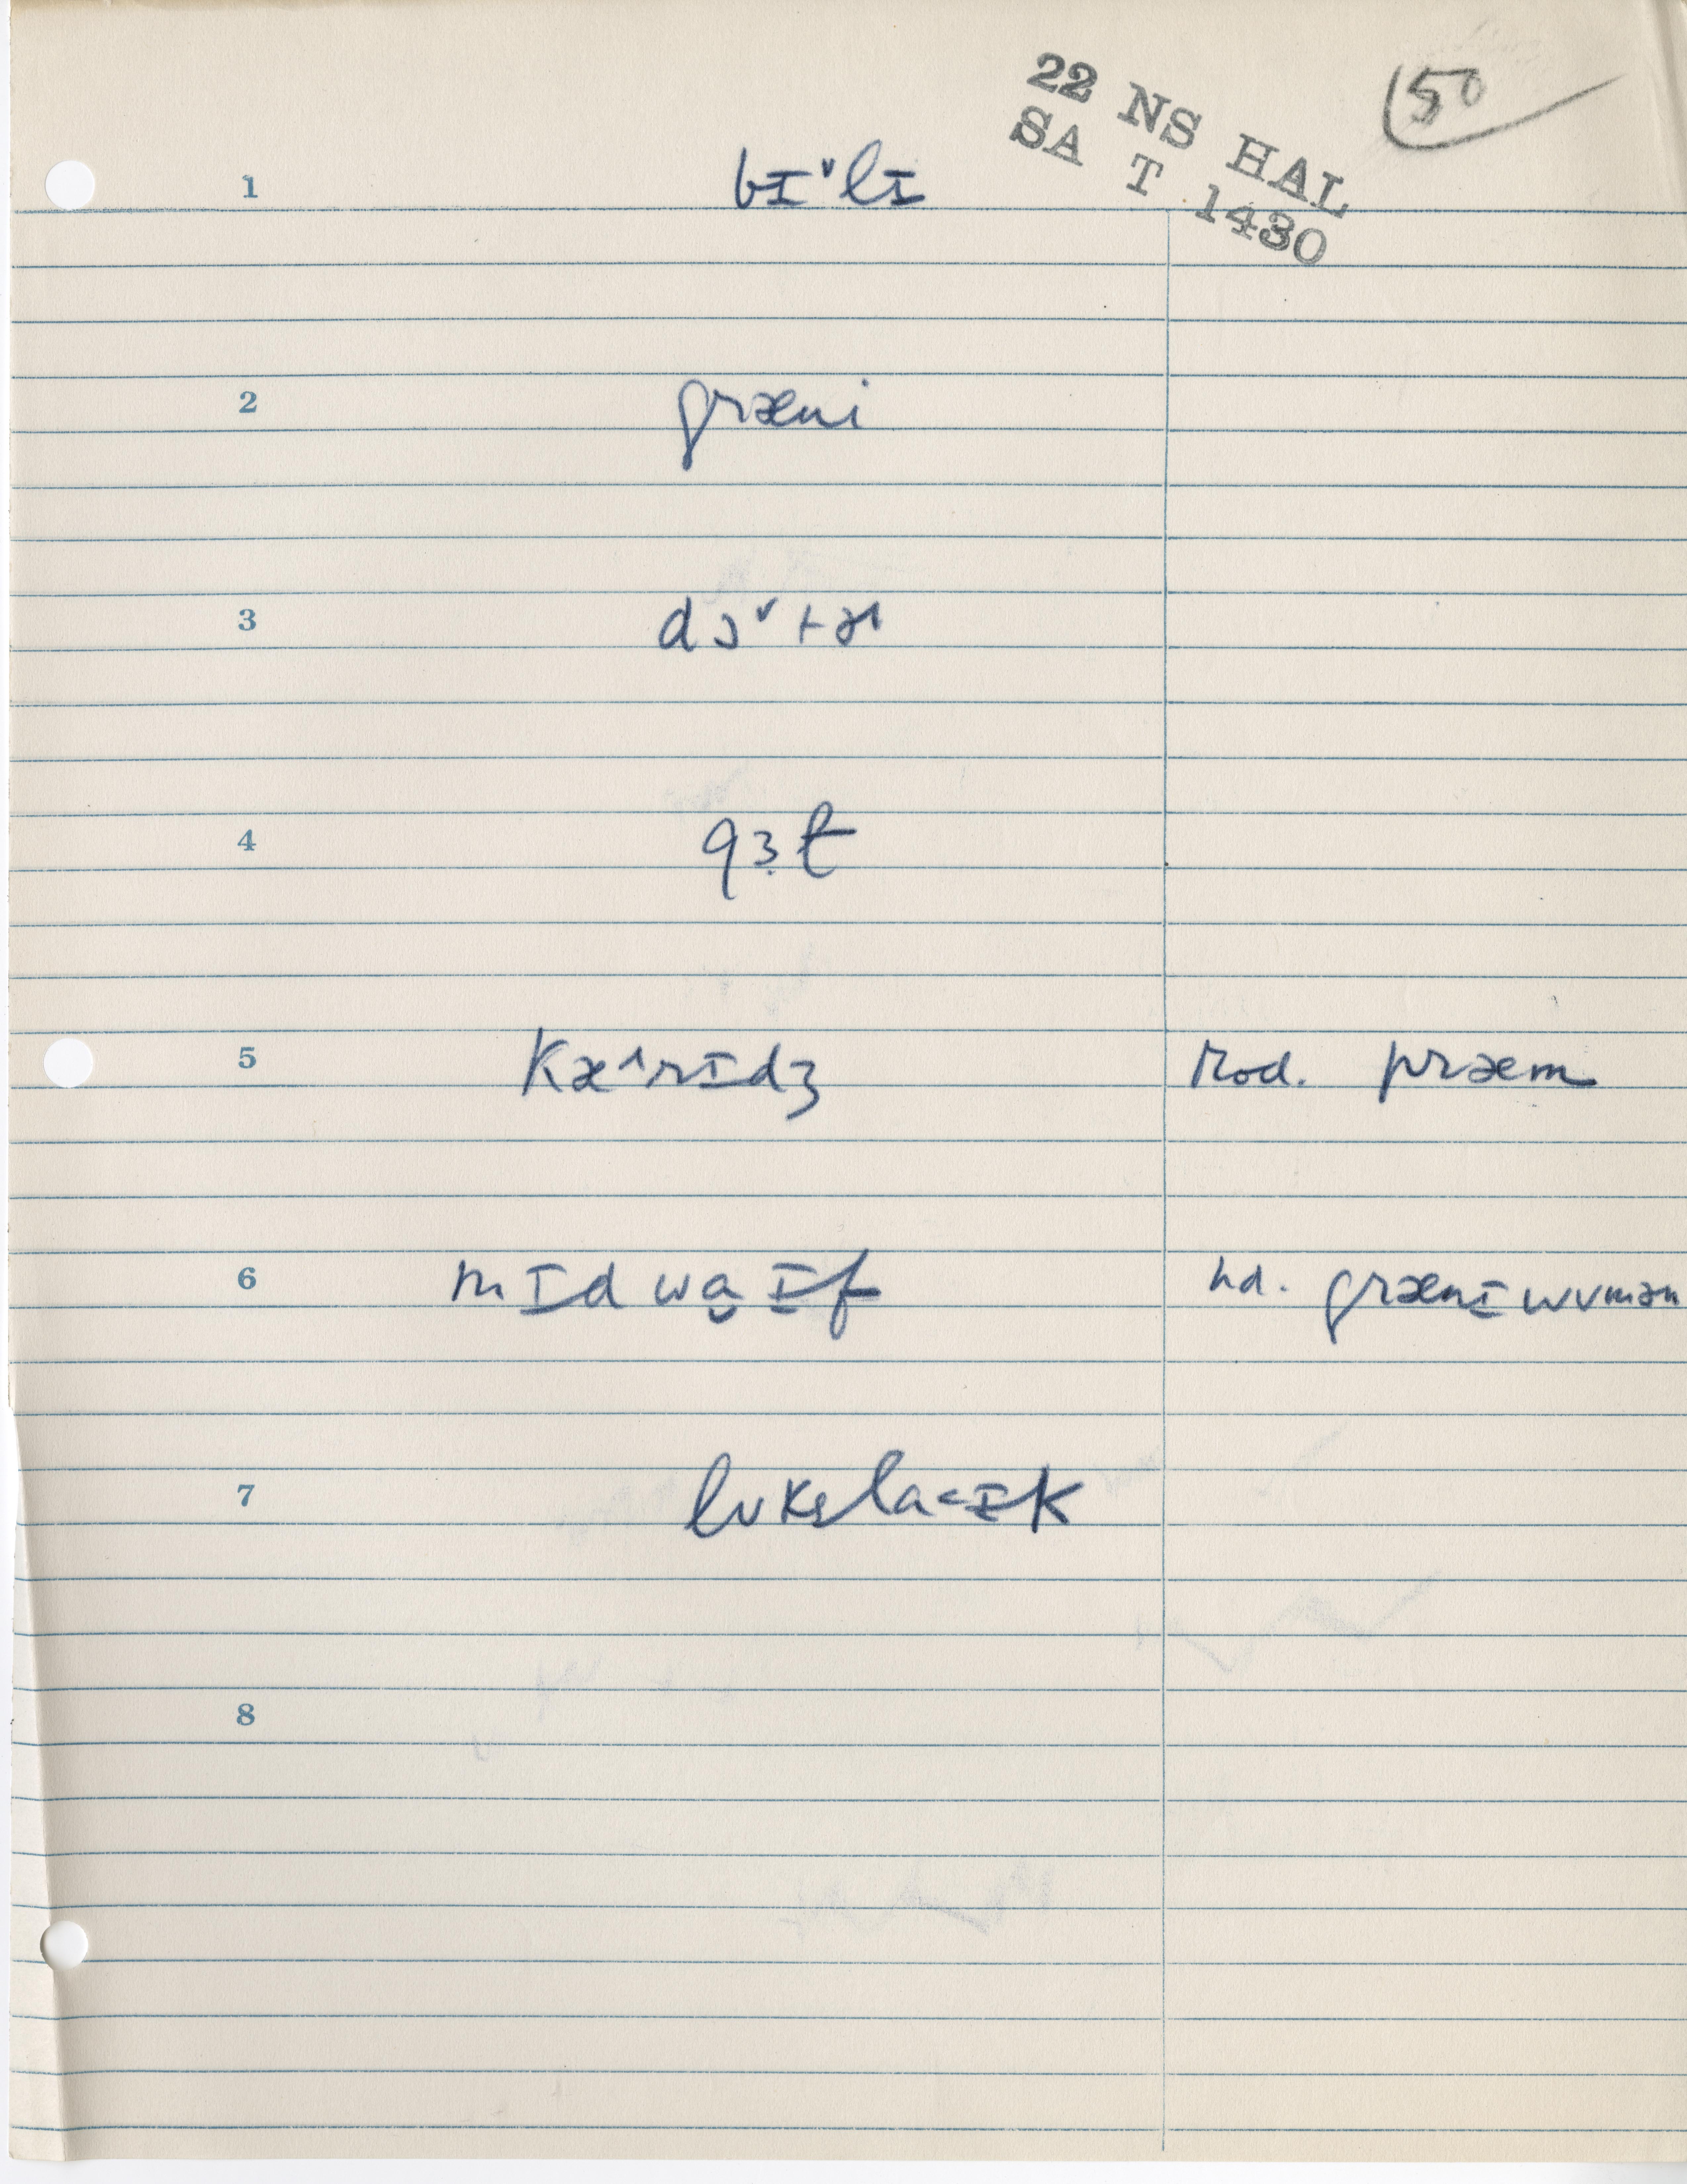 22 NS HAL
SA T 1430
50
1 bɪ˅lɪ
2 græni
3 dɔ˅tɚ
4 gɜt
5 kæ˄rɪdʒ rod. præm
6 mɪdwa̠ɪf hd. grænɪ wʊmən
7 lʊks laɪk
8